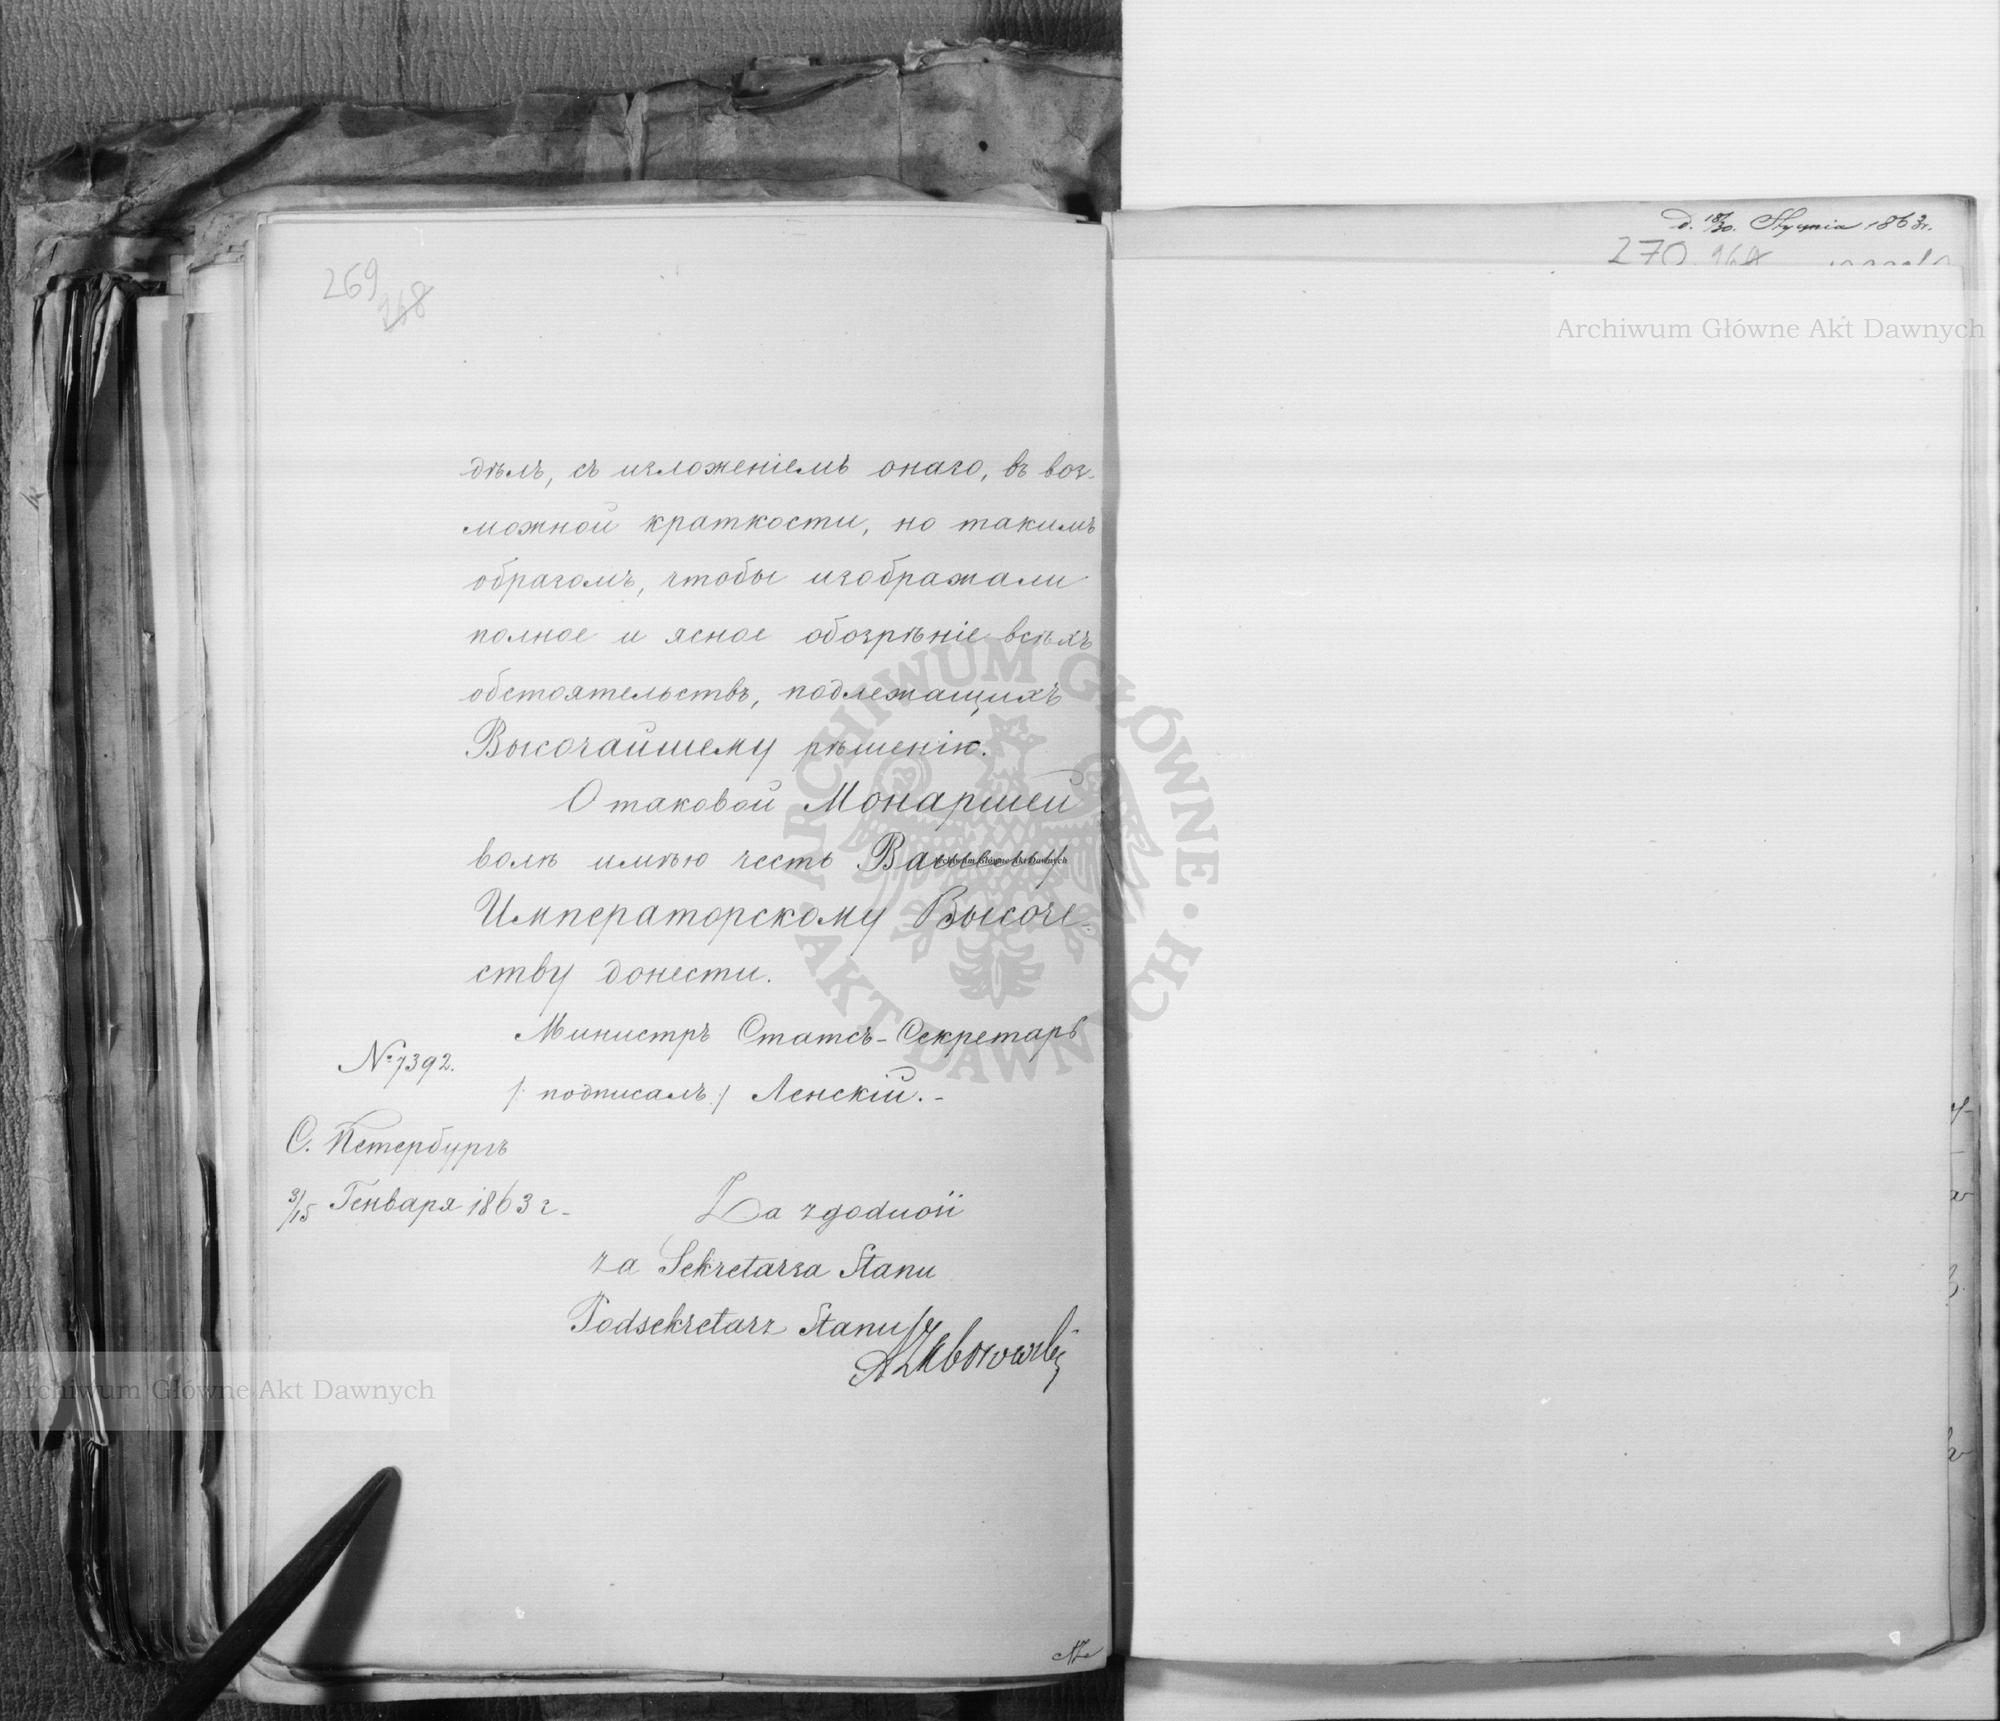 269
268
дѣлъ, съ изложеніемъ онаго, въ воз-
можной краткости, но такимъ
образомъ, чтобы изображали
полное и ясное обозрѣніе всѣхъ
обстоятельствъ, подлежащихъ
Высочайшему рѣшенію.
О таковой Монаршей
волѣ имѣю честь Вашему
Императорскому Высоче-
ству донести.
Министръ Статсъ-Секретарь
№ 7392.
/: подписалъ :/ Ленскій.-
С. Петербургъ
3/15 Генваря 1863 г.
Za zgodność
za Sekretarza Stanu
Podsekretarz Stanu
d. 18/30. Stycznia 1863 r.
270
Archiwum Główne Akt Dawnych
Archiwum Główne Akt Dawnych
Archiwum Główne Akt Dawnych
ARCHIWUM GŁÓWNE • AKT DAWNYCH •